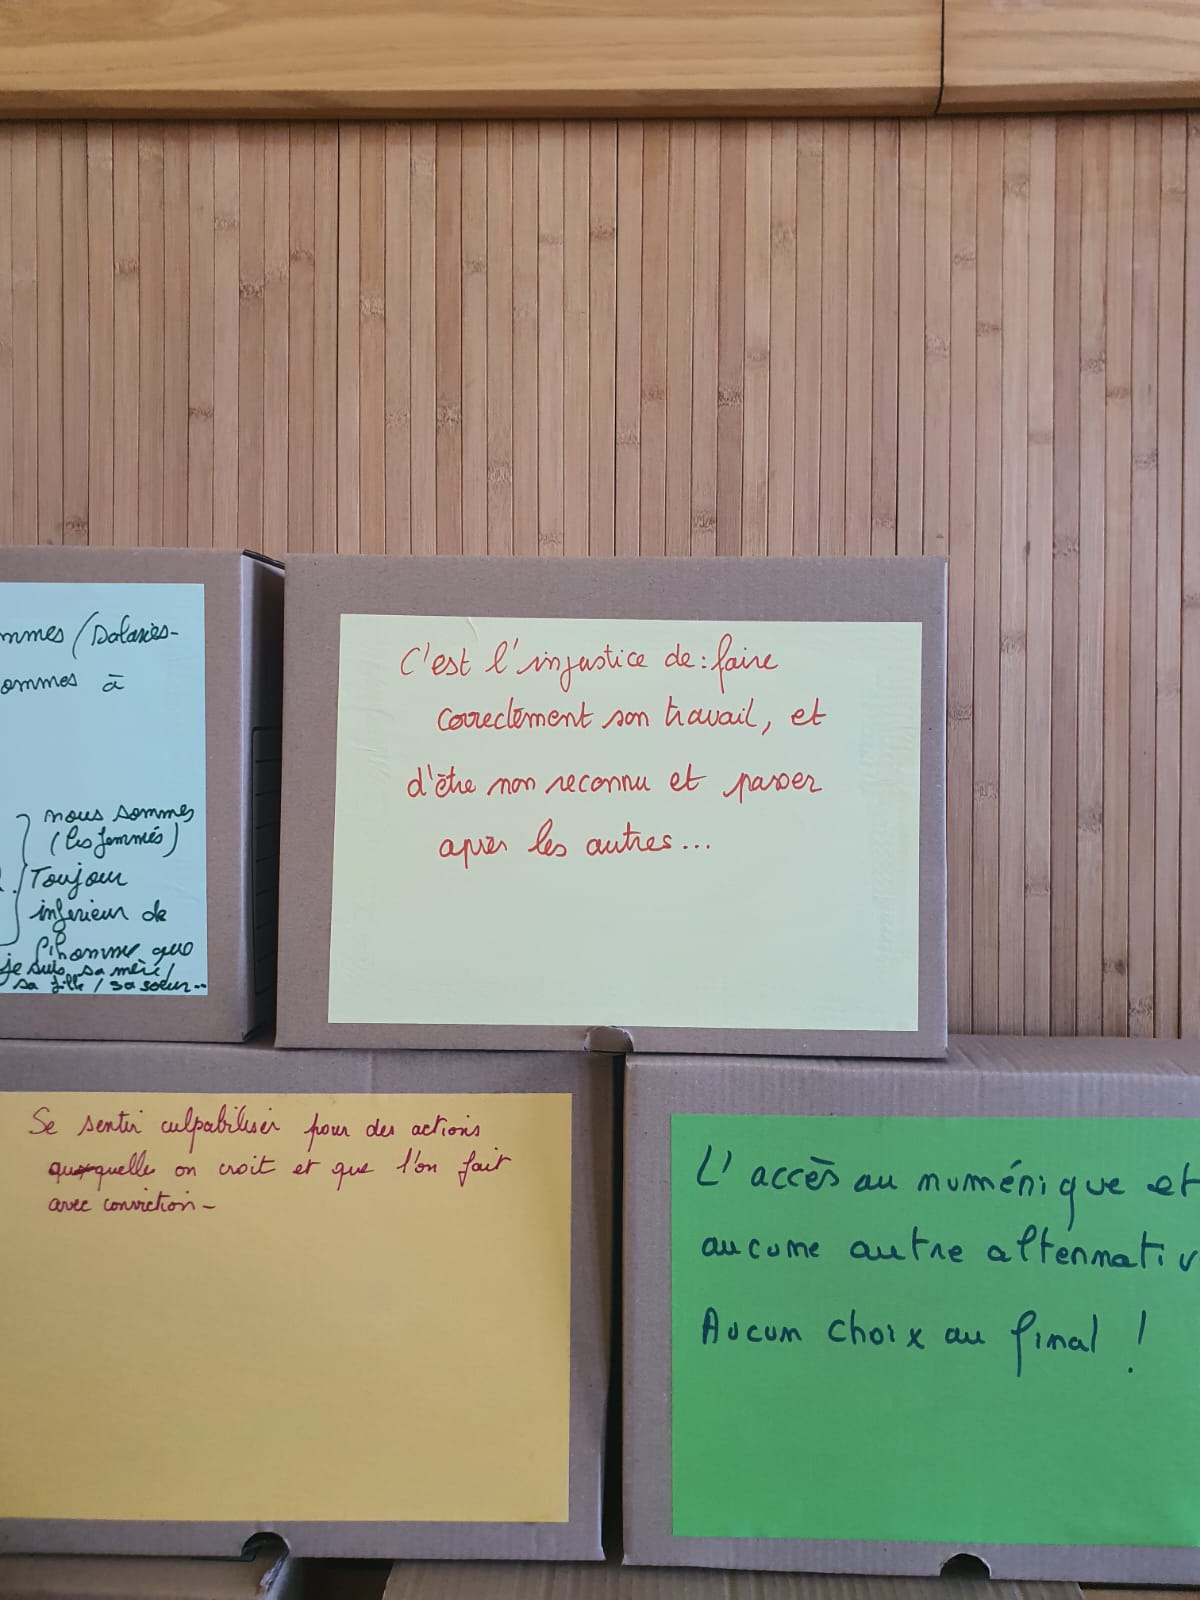 mmes (salariés-
ommes à
nous sommes
(les femmes)
Toujour
inferieur de
l'homme que
je suis sa mère/
sa fille / sa soeur..
C'est l'injustice de: faire
correctement son travail, et
d'être non reconnu et passer
après les autres...
Se sentir culpabiliser pour des actions
quelle on croit et que l'on fait
avec conviction-
L'accès au numérique et
aucune autre alternativ
Aucun choix au final !